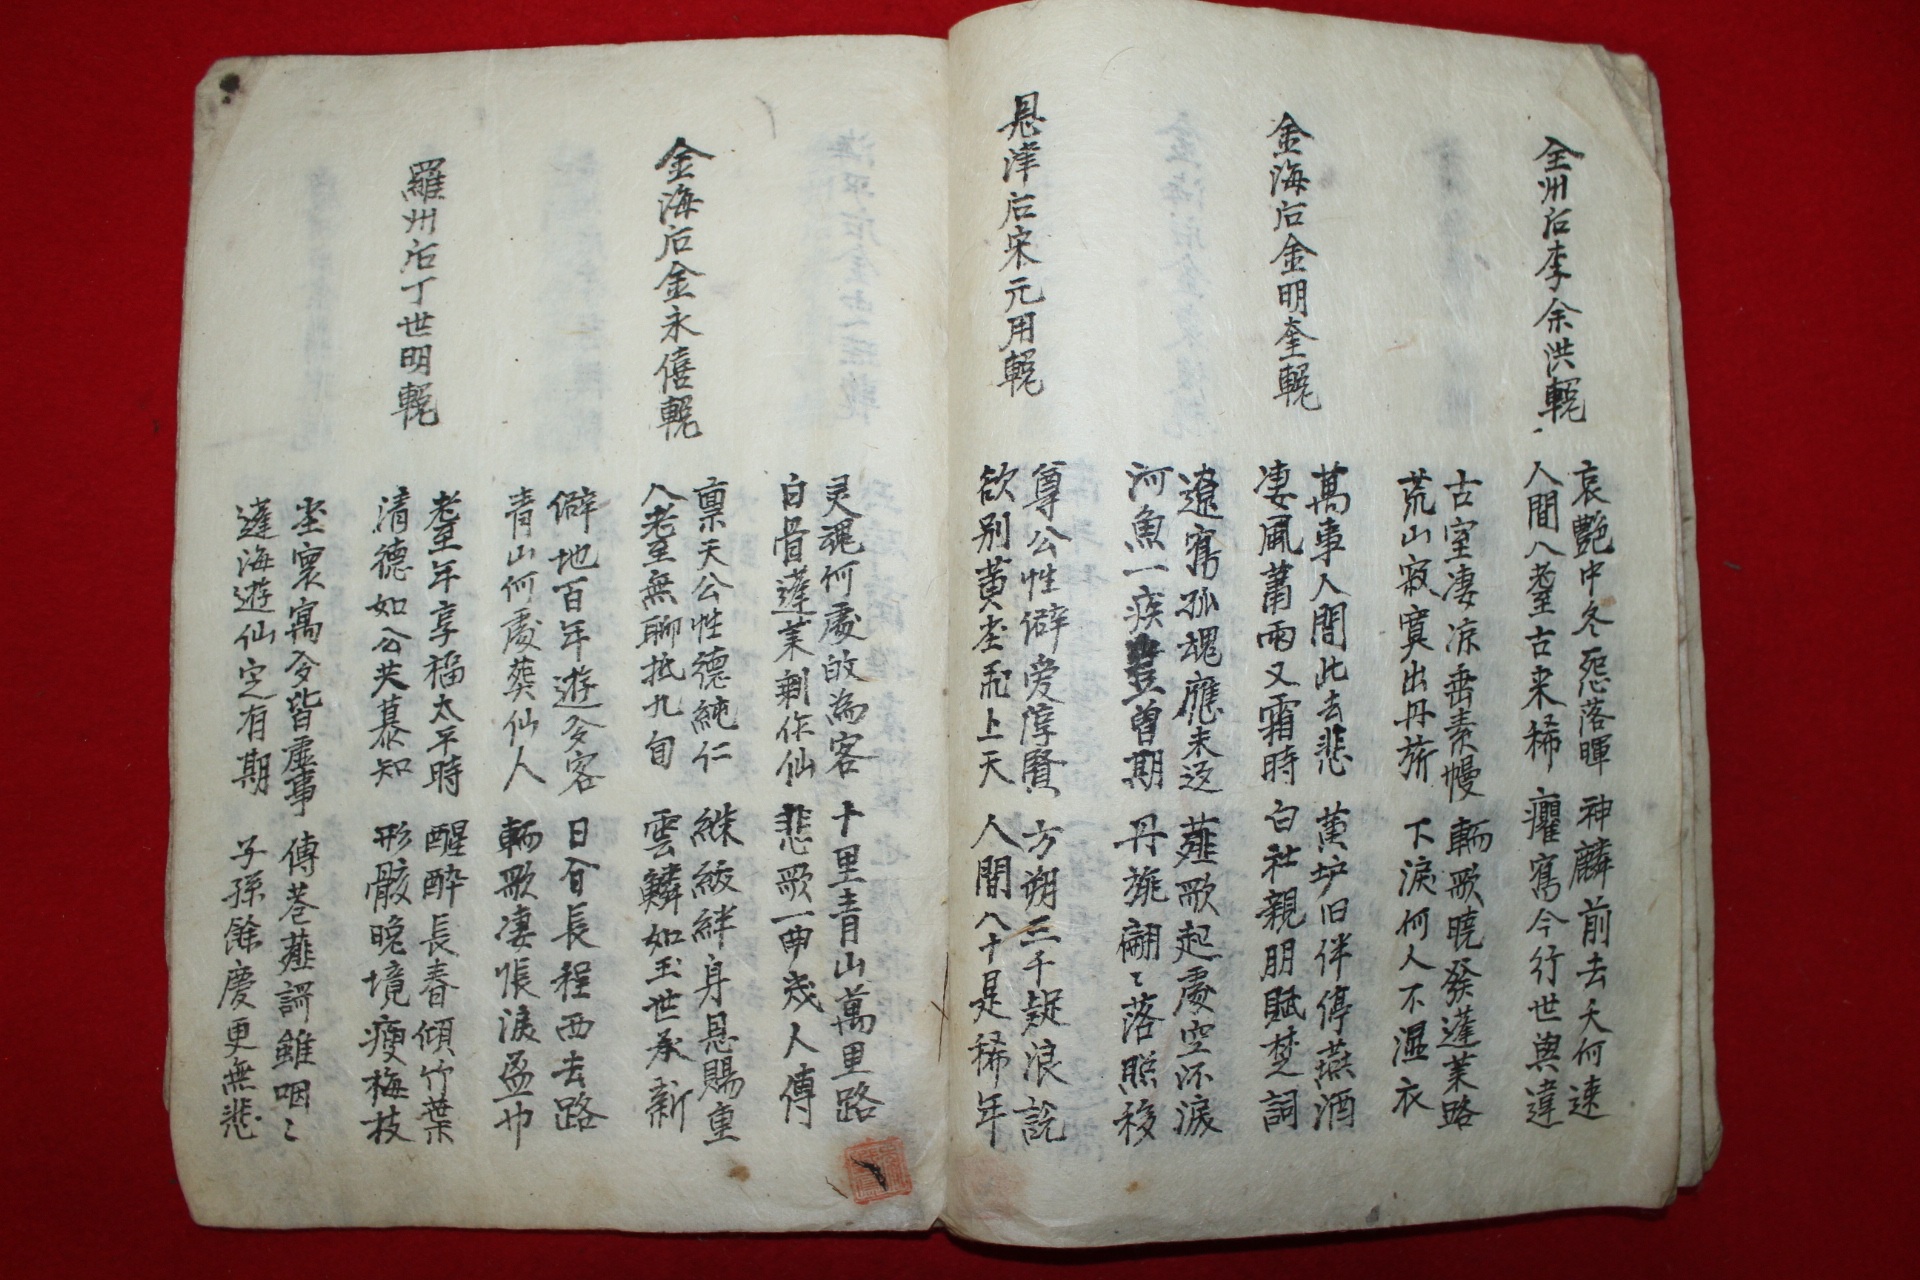 全州后李余洪輓
哀艶中冬怨落暉 神麟前去夭何速
人間八耋古来稀 癯寫今行世與違
古室凄凉垂素幔 輀歌曉發蓬莱路
荒山寂寞出丹旂 下淚何人不濕衣
金海后金明奎輓
萬事人間此去悲 黄垆旧伴停燕酒
凄風蕭雨又霜時 白社親朋賦楚詞
遼寫孤魂應未返 薤歌起處空沾淚
河魚一疾豈曾期 丹旐翩〻落照移
恩津后宋元用輓
尊公性僻愛淳賢 方朔三千疑浪説
欲别黄坐而上天 人間八十是稀年
灵魂何處故為客 十里青山萬里路
白骨蓬莱剩作仙 悲歌一曲幾人傳
金海后金永僖輓
禀天公性德純仁 継紱絆身恩賜重
八耋無聊抵九旬 雲鱗如玉世承新
僻地百年遊多客 日合長程西去路
青山何處葬仙人 輀歌凄悵淚盈巾
羅州后丁世明輓
耋年享福太平時 醒醉長春傾竹葉
清德如公共慕知 形骸晚境瘦梅枝
坐寰寫今皆虚事 傳巷薤謌雖咽〻
蓬海遊仙定有期 子孫餘慶更無悲